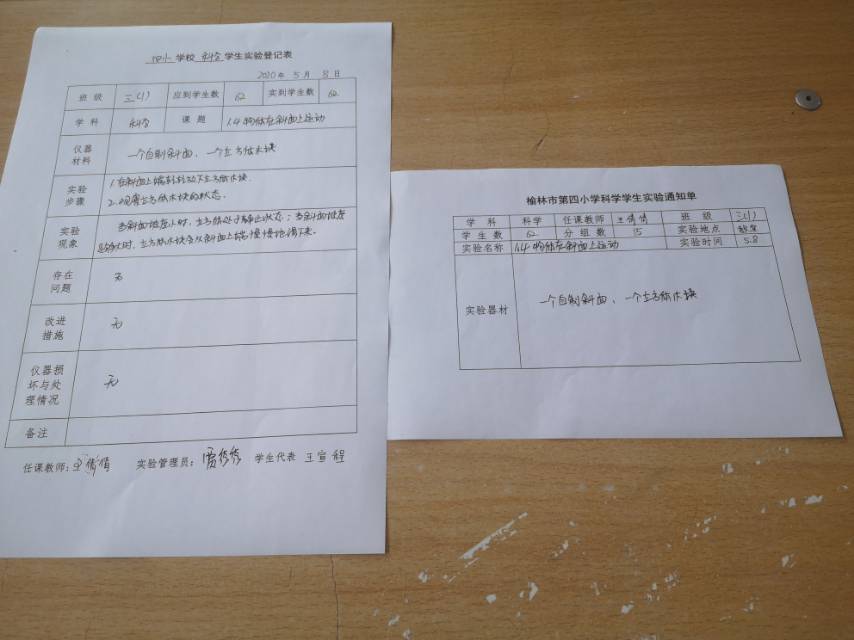 四小 学校 科学 学生实验登记表
2020年 5月 8日
班级 三(1) 应到学生数 62 实到学生数 62
学科 科学 课题 1.4物体在斜面上运动
仪器材料 一个自制斜面、一个立方体木块
实验步骤 1.在斜面上端轻轻放下立方体木块.
2.观察立方体木块的状态.
实验现象 当斜面坡度小时,立方体处于静止状态;当斜面坡度
足够大时,立方体木块会从斜面上端慢慢地滑下来.
存在问题 无
改进措施 无
仪器损坏与处理情况 无
备注
任课教师:王倩倩 实验管理员:贾修修 学生代表 王宣程
榆林市第四小学科学学生实验通知单
学科 科学 任课教师 王倩倩 班级 三(1)
学生数 62 分组数 15 实验地点 教室
实验名称 1.4物体在斜面上运动 实验时间 5.8
实验器材 一个自制斜面、一个立方体木块